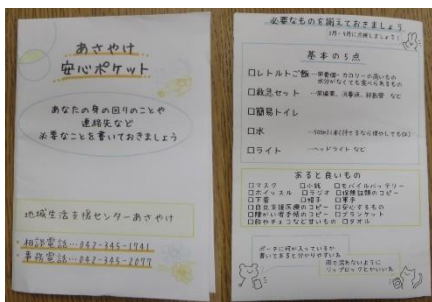 あさやけ
安心ポケット
あなたの身の回りのことや
連絡先など
必要なことを書いておきましょう
地域生活支援センターあさやけ
・相談電話…042-345-1741
・事務電話…042-345-2077
必要なものを揃えておきましょう
基本の5点
□レトルトご飯…栄養価・カロリーの高いもの
水分がなくても食べられるもの
□救急セット…常備薬、消毒液、絆創膏 など
□簡易トイレ
□水 …500ml1本(持てるなら増やしてもOK)
□ライト …ヘッドライト など
あると良いもの
□マスク □小銭 □モバイルバッテリー
□ホイッスル □ラジオ □保険証類のコピー
□下着 □帽子 □軍手
□自立支援医療のコピー □安心するもの
□障がい者手帳のコピー □ブランケット
□飴やチョコなど甘いもの □タオル
ポーチに何が入っているか
書いてあると分かりやすいね
雨で濡れないように
ジップロックとかいいね